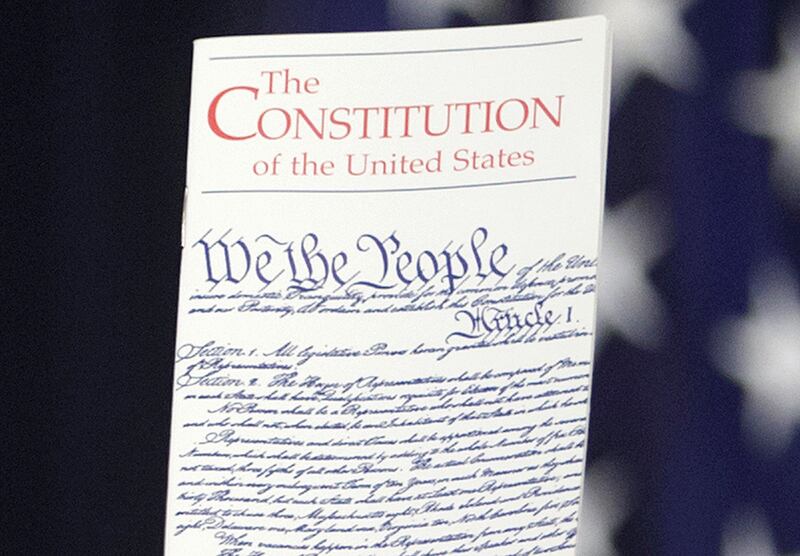 The
CONSTITUTION
of the United States
We the People of the Unit
insure domestic Tranquility, provide for the common defence, promo
and our Posterity, do ordain and establish this Constitution for the Un
Article I.
Section 1. All legislative Powers herein granted shall be vested in
of Representatives.
Section 2. The House of Representatives shall be composed of Mem
in each State shall have Qualifications requisite for Electors of the most numerous
No Person shall be a Representative who shall not have attained to
and who shall not, when elected, be an Inhabitant of that State in which he
Representatives and direct Taxes shall be apportioned among the several
Numbers, which shall be determined by adding to the whole Number of free
not taxed, three fifths of all other Persons. The actual Enumeration shall be
and within every subsequent Term of ten Years, in such Manner as they
thirty Thousand, but each State shall have at Least one Representative; and
entitled to chuse three, Massachusetts eight, Rhode Island and Providence
eight, Delaware one, Maryland six, Virginia ten, North Carolina five,
When vacancies happen in the Representation from any State, the